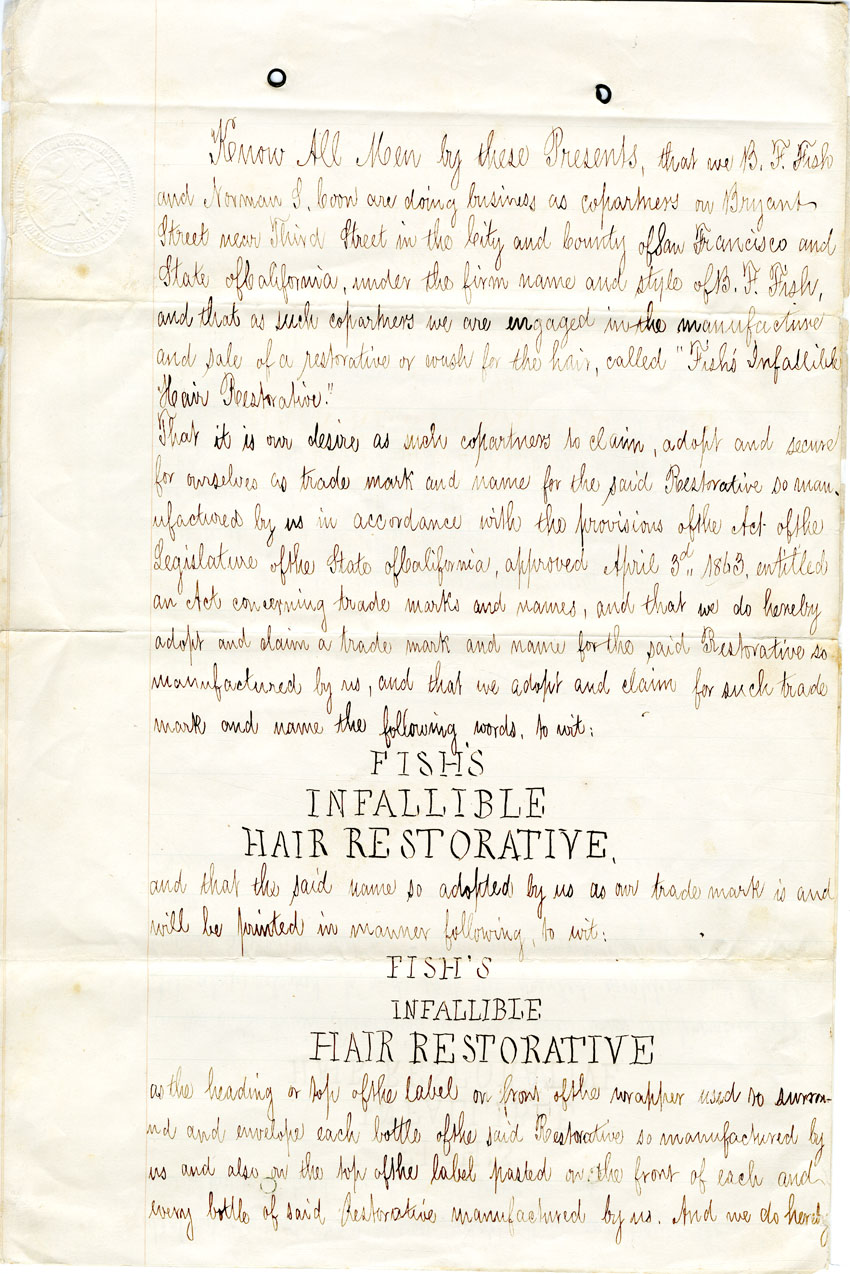 Know All Men by these Presents, that we B. F. Fish
and Norman S. Coon are doing business as copartners on Bryant
Street near Third Street in the City and County of San Francisco and
State of California, under the firm name and style of B. F. Fish,
and that as such copartners we are engaged in the manufacture
and sale of a restorative or wash for the hair, called "Fish's Infallible
Hair Restorative."
That it is our desire as such copartners to claim, adopt and secure
for ourselves as trade mark and name for the said Restorative so man-
ufactured by us in accordance with the provisions of the Act of the
Legislature of the State of California, approved April 3d, 1863, entitled
an Act concerning trade marks and names, and that we do hereby
adopt and claim a trade mark and name for the said Restorative so
manufactured by us, and that we adopt and claim for such trade
mark and name the following words, to wit:
FISH'S
INFALLIBLE
HAIR RESTORATIVE.
and that the said name so adopted by us as our trade mark is and
will be printed in manner following, to wit:
FISH'S
INFALLIBLE
HAIR RESTORATIVE
as the heading or top of the label or front of the wrapper used to surrou-
nd and envelope each bottle of the said Restorative so manufactured by
us and also on the top of the label pasted on the front of each and
every bottle of said Restorative manufactured by us. And we do hereby